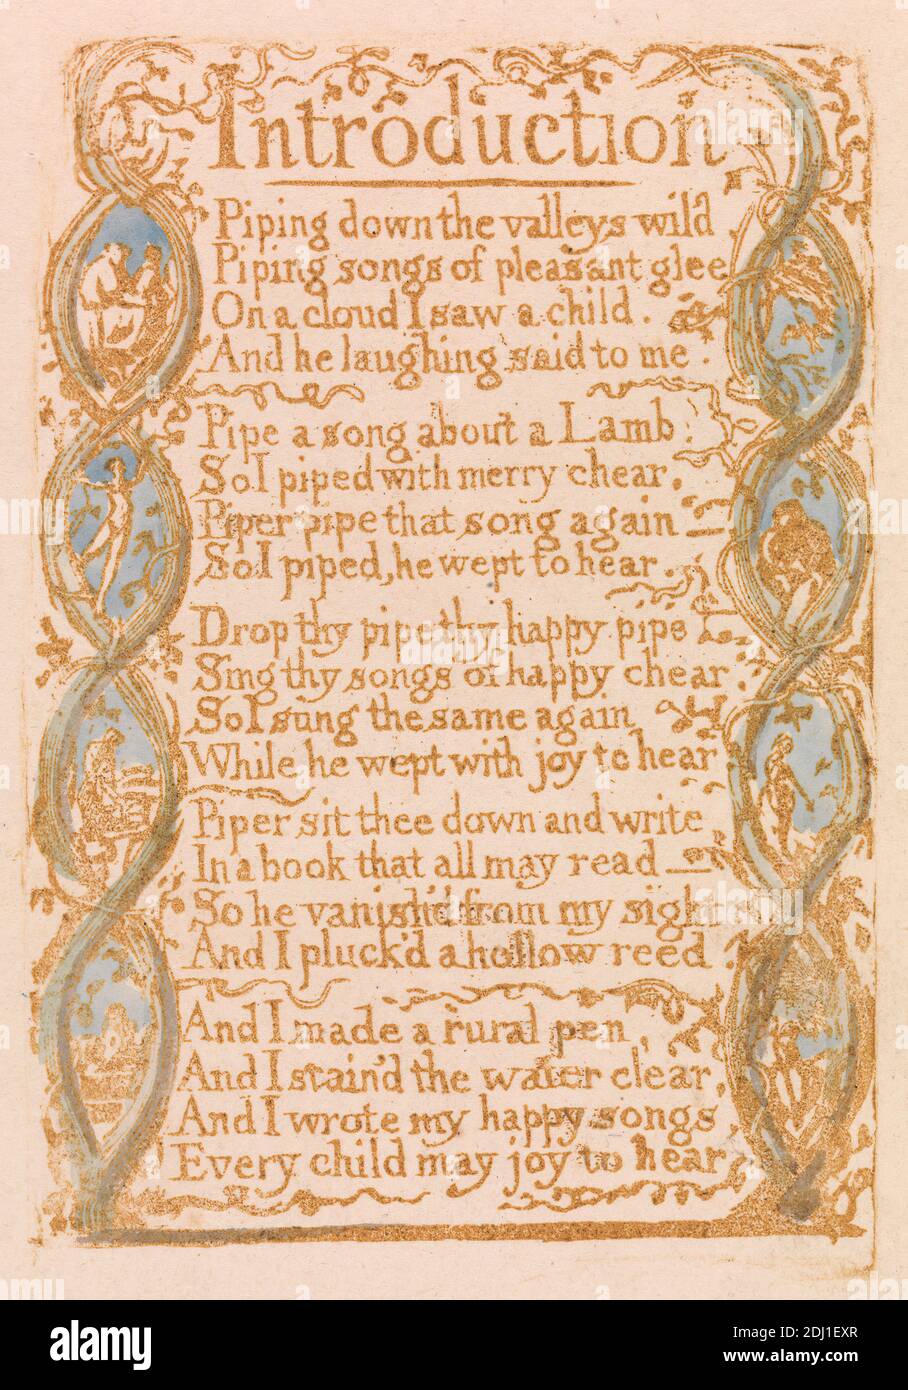 Introduction
Piping down the valleys wild
Piping songs of pleasant glee
On a cloud I saw a child.
And he laughing said to me.
Pipe a song about a Lamb:
So I piped with merry chear,
Piper pipe that song again—
So I piped, he wept to hear.
Drop thy pipe thy happy pipe
Sing thy songs of happy chear.
So I sung the same again
While he wept with joy to hear
Piper sit thee down and write
In a book that all may read—
So he vanish'd from my sight
And I pluck'd a hollow reed
And I made a rural pen,
And I stain'd the water clear,
And I wrote my happy songs
Every child may joy to hear
alamy
Image ID: 2DJ1EXR
www.alamy.com